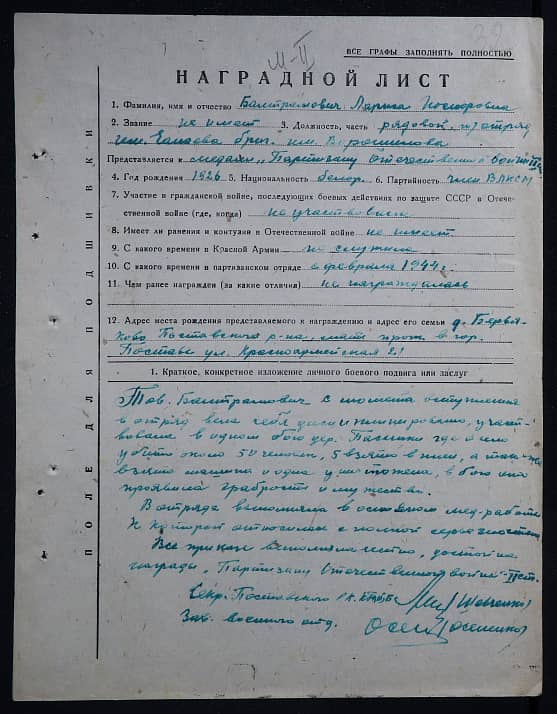 М-II
ВСЕ ГРАФЫ ЗАПОЛНЯТЬ ПОЛНОСТЬЮ
НАГРАДНОЙ ЛИСТ
1. Фамилия, имя и отчество Лариса Иосифовна
2. Звание не имеет 3. Должность, часть рядовой, п/отряд
им. Чапаева бриг. им. Ворошилова
Представляется к медали „Партизану Отечественной войны II ст
4. Год рождения 1926 5. Национальность белор. 6. Партийность член ВЛКСМ
7. Участие в гражданской войне, последующих боевых действиях по защите СССР в Отече-
ственной войне (где, когда) не участвовала
8. Имеет ли ранения и контузии в Отечественной войне не имеет
9. С какого времени в Красной Армии не служила
10. С какого времени в партизанском отряде с февраля 1944 г.
11. Чем ранее награжден (за какие отличия) не награждалась
12. Адрес места рождения представляемого к награждению и адрес его семьи д.
Поставского р-на, прож. в гор.
Поставы ул. Красноармейская 21
1. Краткое, конкретное изложение личного боевого подвига или заслуг
Тов. с момента вступления
в отряд вела себя дисциплинировано, участ-
вовала в одном бою дер. где было
убито около 50 человек, 5 взято в плен, а также
взято машина и одна уничтожена, в бою она
проявила храбрость и мужество.
В отряде выполняла в основном мед. работу
к которой относилась с полной серьезностью
Все приказы выполняла честно, достойна
награды „Партизану Отечественной войны" II ст.
Секр. Поставского РК КП(б)Б
Зав. военного отд.
ПОЛЕ ДЛЯ ПОДШИВКИ